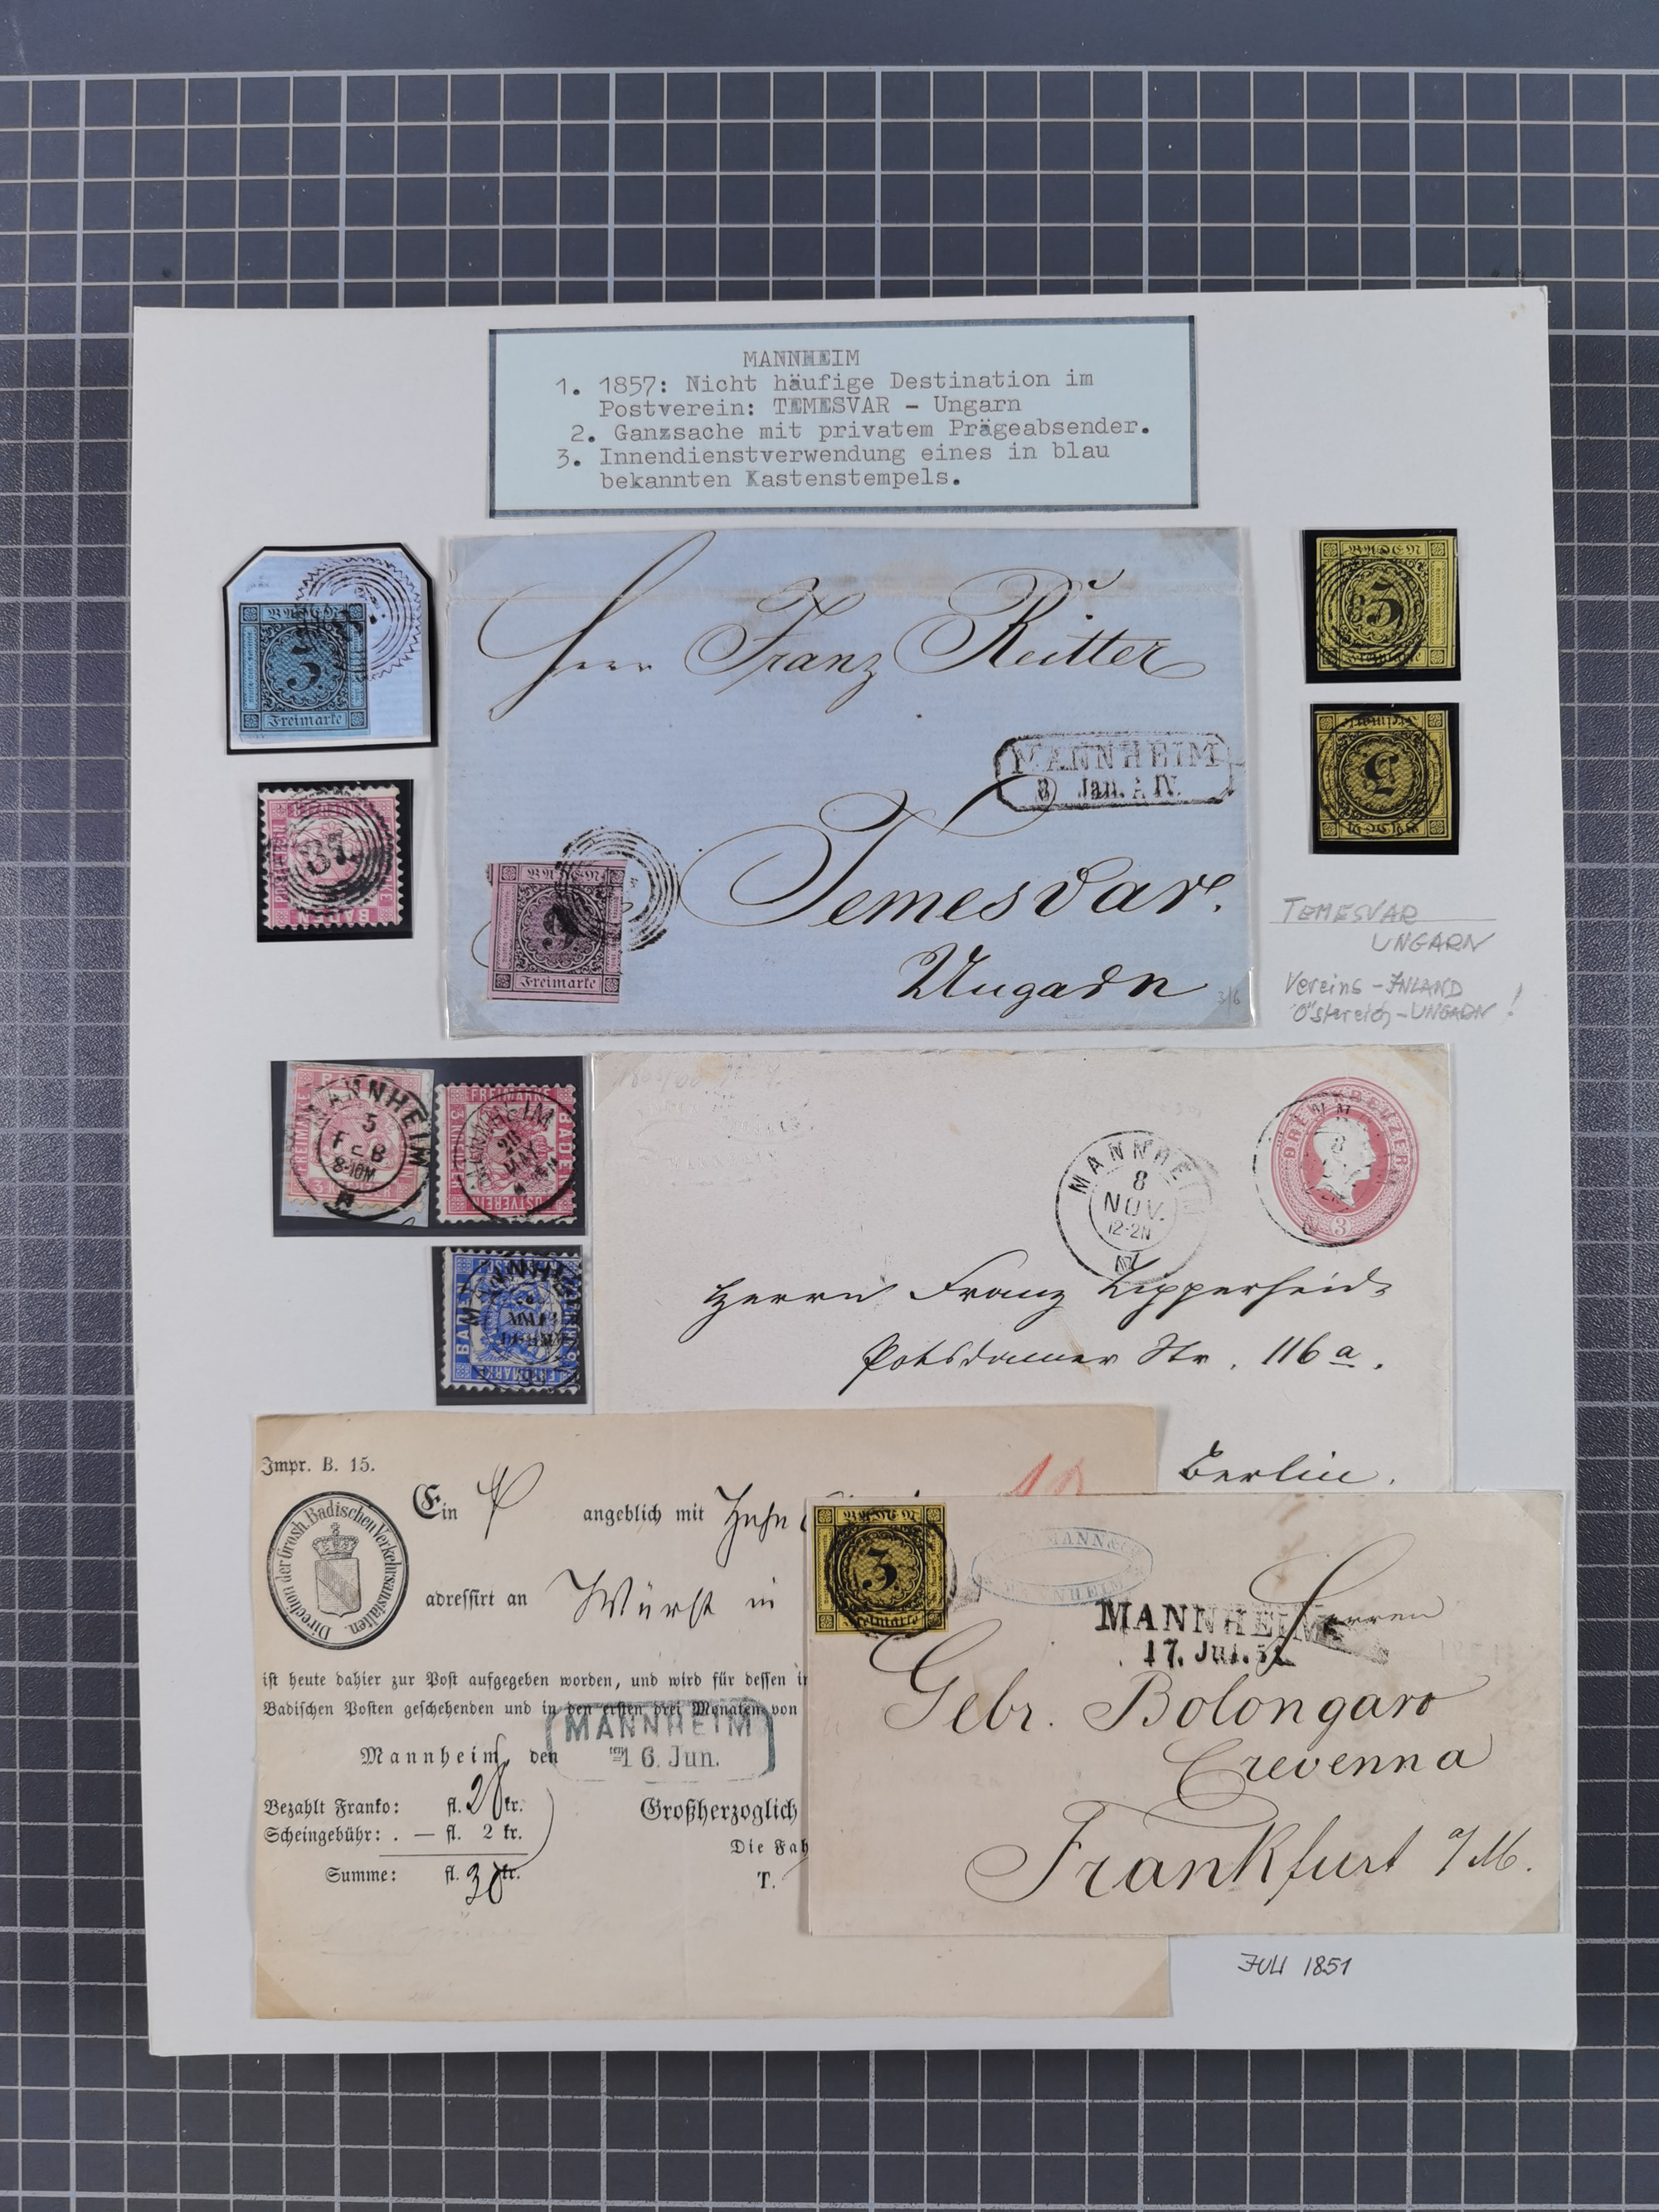 MANNHEIM
1. 1857: Nicht häufige Destination im
Postverein: TEMESVAR - Ungarn
2. Ganzsache mit privatem Prägeabsender.
3. Innendienstverwendung eines in blau
bekannten Kastenstempels.
BADEN
3
Freimarke
Herr Franz Reitter
MANNHEIM
8 Jan. A IV.
Temesvar.
Ungarn
BADEN
9
Freimarke
3/6
BADEN
3
Freimarke
BADEN
3
Freimarke
87
BADEN
TEMESVAR
UNGARN
Vereins-INLAND
Österreich-UNGARN!
MANNHEIM
5
FEB
8-10M
N
FREIMARKE
BADEN
POSTVEREIN
MANNHEIM
28
MAY
BADEN
FREIMARKE
MANNHEIM
DREI KREUZER
3
MANNHEIM
8
NOV.
12-2N
N
Herrn Franz Lipperheide
Potsdamer Str. 116a.
Berlin.
Impr. B. 15.
Direction der Grosh. Badischen Verkehrsanstalten.
Ein P angeblich mit
adressirt an Würst in
ist heute dahier zur Post aufgegeben worden, und wird für dessen
Badischen Posten geschehenden und in den ersten drei Monaten von
MANNHEIM
16. Jun.
Mannheim, den
Bezahlt Franko: fl. 28 kr.
Scheingebühr: . — fl. 2 kr.
Summe: fl. 30 kr.
Großherzoglich
Die
T.
BADEN
3
Freimarke
MANNHEIM
MANNHEIM
17. Jul. 51
Herren
Gebr. Bolongaro
Crevenna
Frankfurt a/M.
JULI 1851